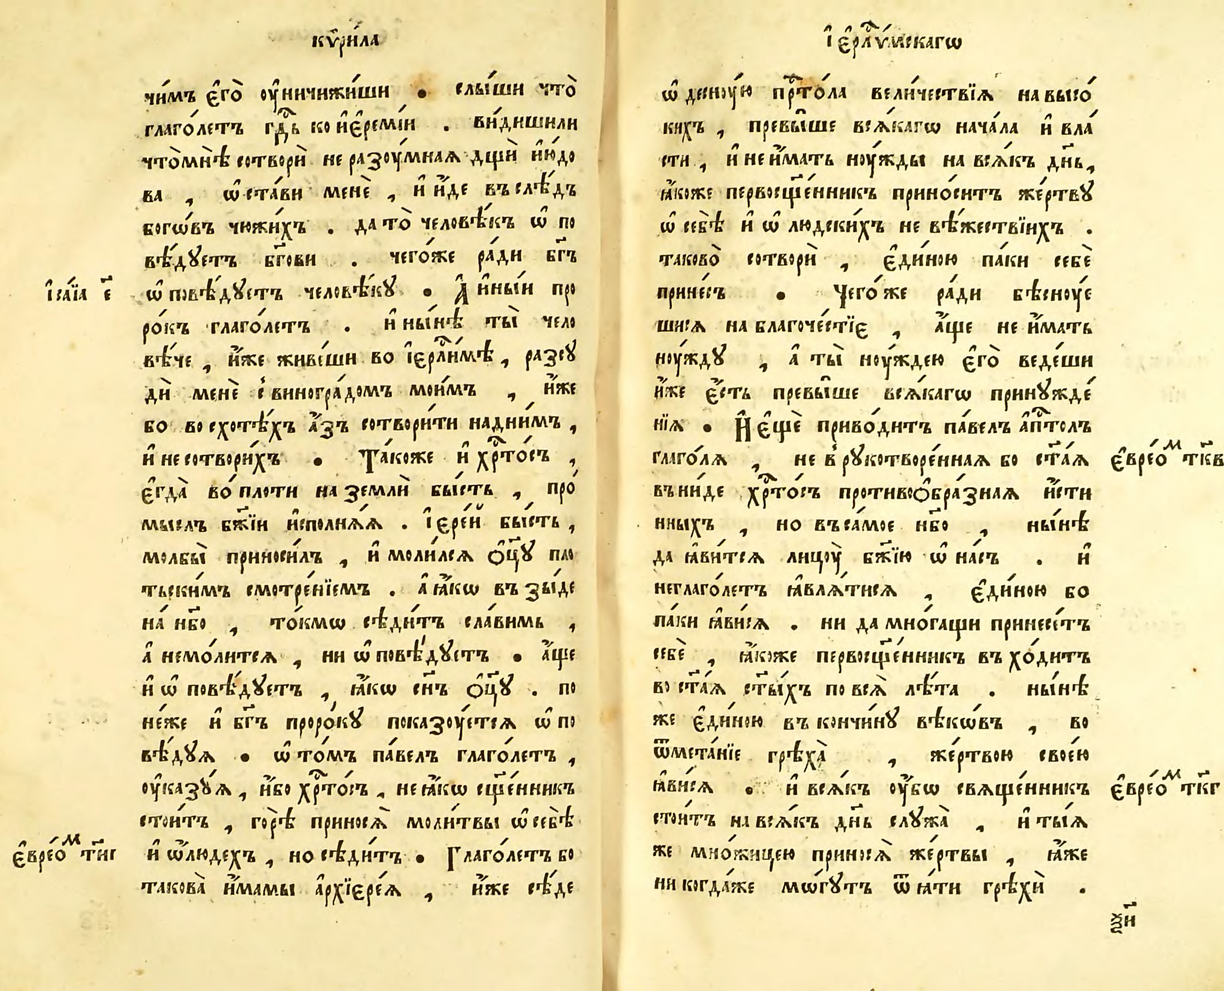 кѷри́ла
чи́мъ є҆го̀ ᲂу҆ничижиши . слы́ши что̀
глаго́летъ гдⷭ҇ь ко і҆єремі́и . ви́дишили
что̀мнѣ̀ сотворѝ не разоу́мная дщѝ и҆ю́до
ва , ѡ҆ста́ви менѐ , и҆ и҆́де въслѣ́дъ
богѡ́въ чюжи́хъ . да то̀ человѣ́къ ѡ҆ по
вѣ́дуетъ бг҃ови . чего́же ра́ди бг҃ъ
і҆са́їа є҃
ѡ҆ повѣ́дуетъ человѣ́ку . А҆ и҆ны́и про
ро́къ глаго́летъ . и҆ ны́нѣ ты̀ чело
вѣ́че , и҆́же живе́ши во і҆єрⷭ҇ли́мѣ , разсу
дѝ менѐ с виногра́домъ мои́мъ , и҆́же
бо восхотѣ́хъ а҆́зъ сотвори́ти надни́мъ ,
и҆ несотвори́хъ . Та́коже и҆ хрⷭ҇то́съ ,
є҆гда̀ во́ плоти на землѝ бы́сть , про
мы́слъ бж҃їи и҆сполня́я . і҆єре́й бы́сть ,
молбы̀ приноси́лъ , и҆ моли́лся ѻ҆ц҃ꙋ пло
тьски́мъ смотре́нїемъ . а҆ ꙗ҆́кѡ въ зы́де
на́ нб҃о , то́кмѡ сѣди́тъ сла́вимь ,
а҆ немо́лится , ни ѡ҆ повѣ́дуетъ . а҆́ще
и҆ ѡ҆ повѣ́дуетъ , ꙗ҆́кѡ сн҃ъ ѻ҆ц҃ꙋ . по
не́же и҆ бг҃ъ проро́ку показоу́ется ѡ҆ по
вѣ́дуя . ѡ҆ то́мъ па́велъ глаго́летъ ,
ᲂу҆казу́я , и҆́бо хрⷭ҇то́съ , не ꙗ҆́кѡ сщ҃е́нникъ
стои́тъ , го́рѣ принося̀ моли́твы ѡ҆ себѣ̀
є҆врео́ⷨ тн҃г
и҆ ѡ҆ лю́дехъ , но сѣди́тъ . Глаго́летъ бо
такова̀ и҆́мамы а҆рхїере́я , и҆́же сѣ́де
і҆єрⷭ҇ли́мскагѡ
ѡ҆ десноу́ю прⷭ҇то́ла вели́чествїя навысо́
кихъ , превы́ше вся́кагѡ нача́ла и҆ вла́
сти , и҆ неи҆́мать ноу́жды на вся́къ дн҃ь ,
ꙗ҆́коже первосщ҃е́нникъ прино́ситъ же́ртву
ѡ҆ себѣ̀ и҆ ѡ҆ людски́хъ не вѣ́жествїихъ .
таково̀ сотворѝ , є҆ди́ною па́ки себѐ
прине́съ . Чего́же ра́ди бѣсноу́е
шися на благоче́стїє , а҆́ще не и҆́мать
ноу́жду , а҆ ты̀ ноу́ждею є҆го̀ веде́ши
и҆́же є҆́сть превы́ше вся́кагѡ принужде́
нїя . И҆ є҆щѐ приво́дитъ па́велъ а҆пⷭ҇толъ
глаго́ля , не в рукотворе́нная бо ст҃а́я
є҆врео́ⷨ тк҃в
въниде хрⷭ҇то́съ противоѻбра́зная и҆́сти
нныхъ , но въса́мое нб҃о , ны́нѣ
да ꙗ҆ви́тся лицоу̀ бж҃їю ѡ҆ на́съ . и҆
неглаго́летъ ꙗ҆вля́тися , є҆ди́ною бо
па́ки ꙗ҆ви́ся . ни да мно́гащи принесе́тъ
себѐ , ꙗ҆́коже первосщ҃е́нникъ въ хо́дитъ
во ст҃а́я ст҃ы́хъ по вся̀ лѣ́та . ны́нѣ
же є҆ди́ною въ кончи́ну вѣ́кѡвъ , во
ѿмета́нїе грѣха̀ , же́ртвою свое́ю
ꙗ҆ви́ся . и҆ вся́къ ᲂу҆́бѡ свяще́нникъ
є҆врео́ⷨ тк҃г
стои́тъ на вся́къ дн҃ь служа̀ , и҆ ты́я
же мно́жицею принося̀ же́ртвы , ꙗ҆́же
ни когда́же мѡ́гутъ ѿ ꙗ҆́ти грѣхѝ .
ѯ҃и